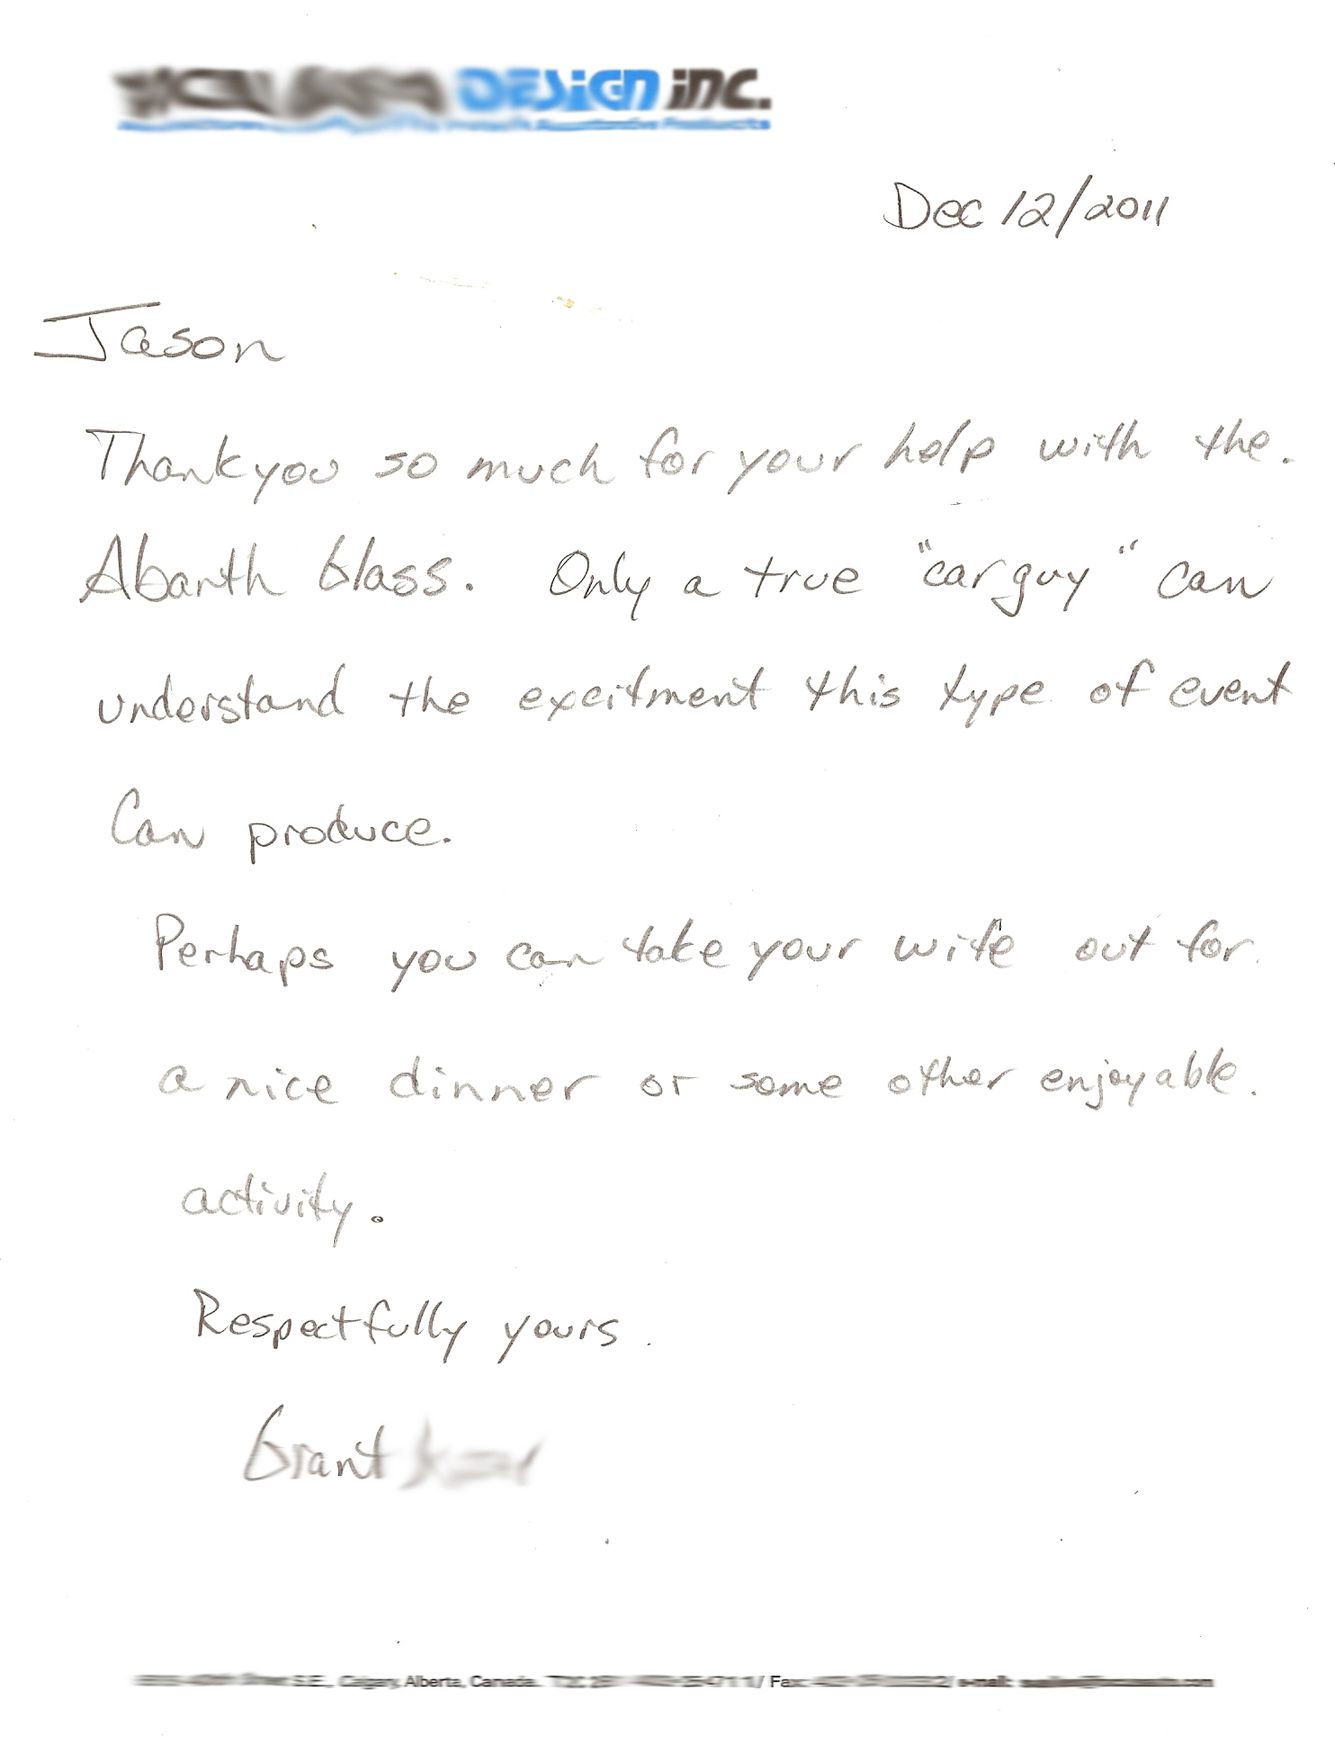 DESIGN INC.
Dec 12/2011
Jason
Thank you so much for your help with the.
Abarth Glass. Only a true "car guy" can
understand the excitment this type of event
Can produce.
Perhaps you can take your wife out for
a nice dinner or some other enjoyable.
activity.
Respectfully yours.
Grant
Street S.E., Calgary, Alberta, Canada. T2C / Fax: / e-mail: